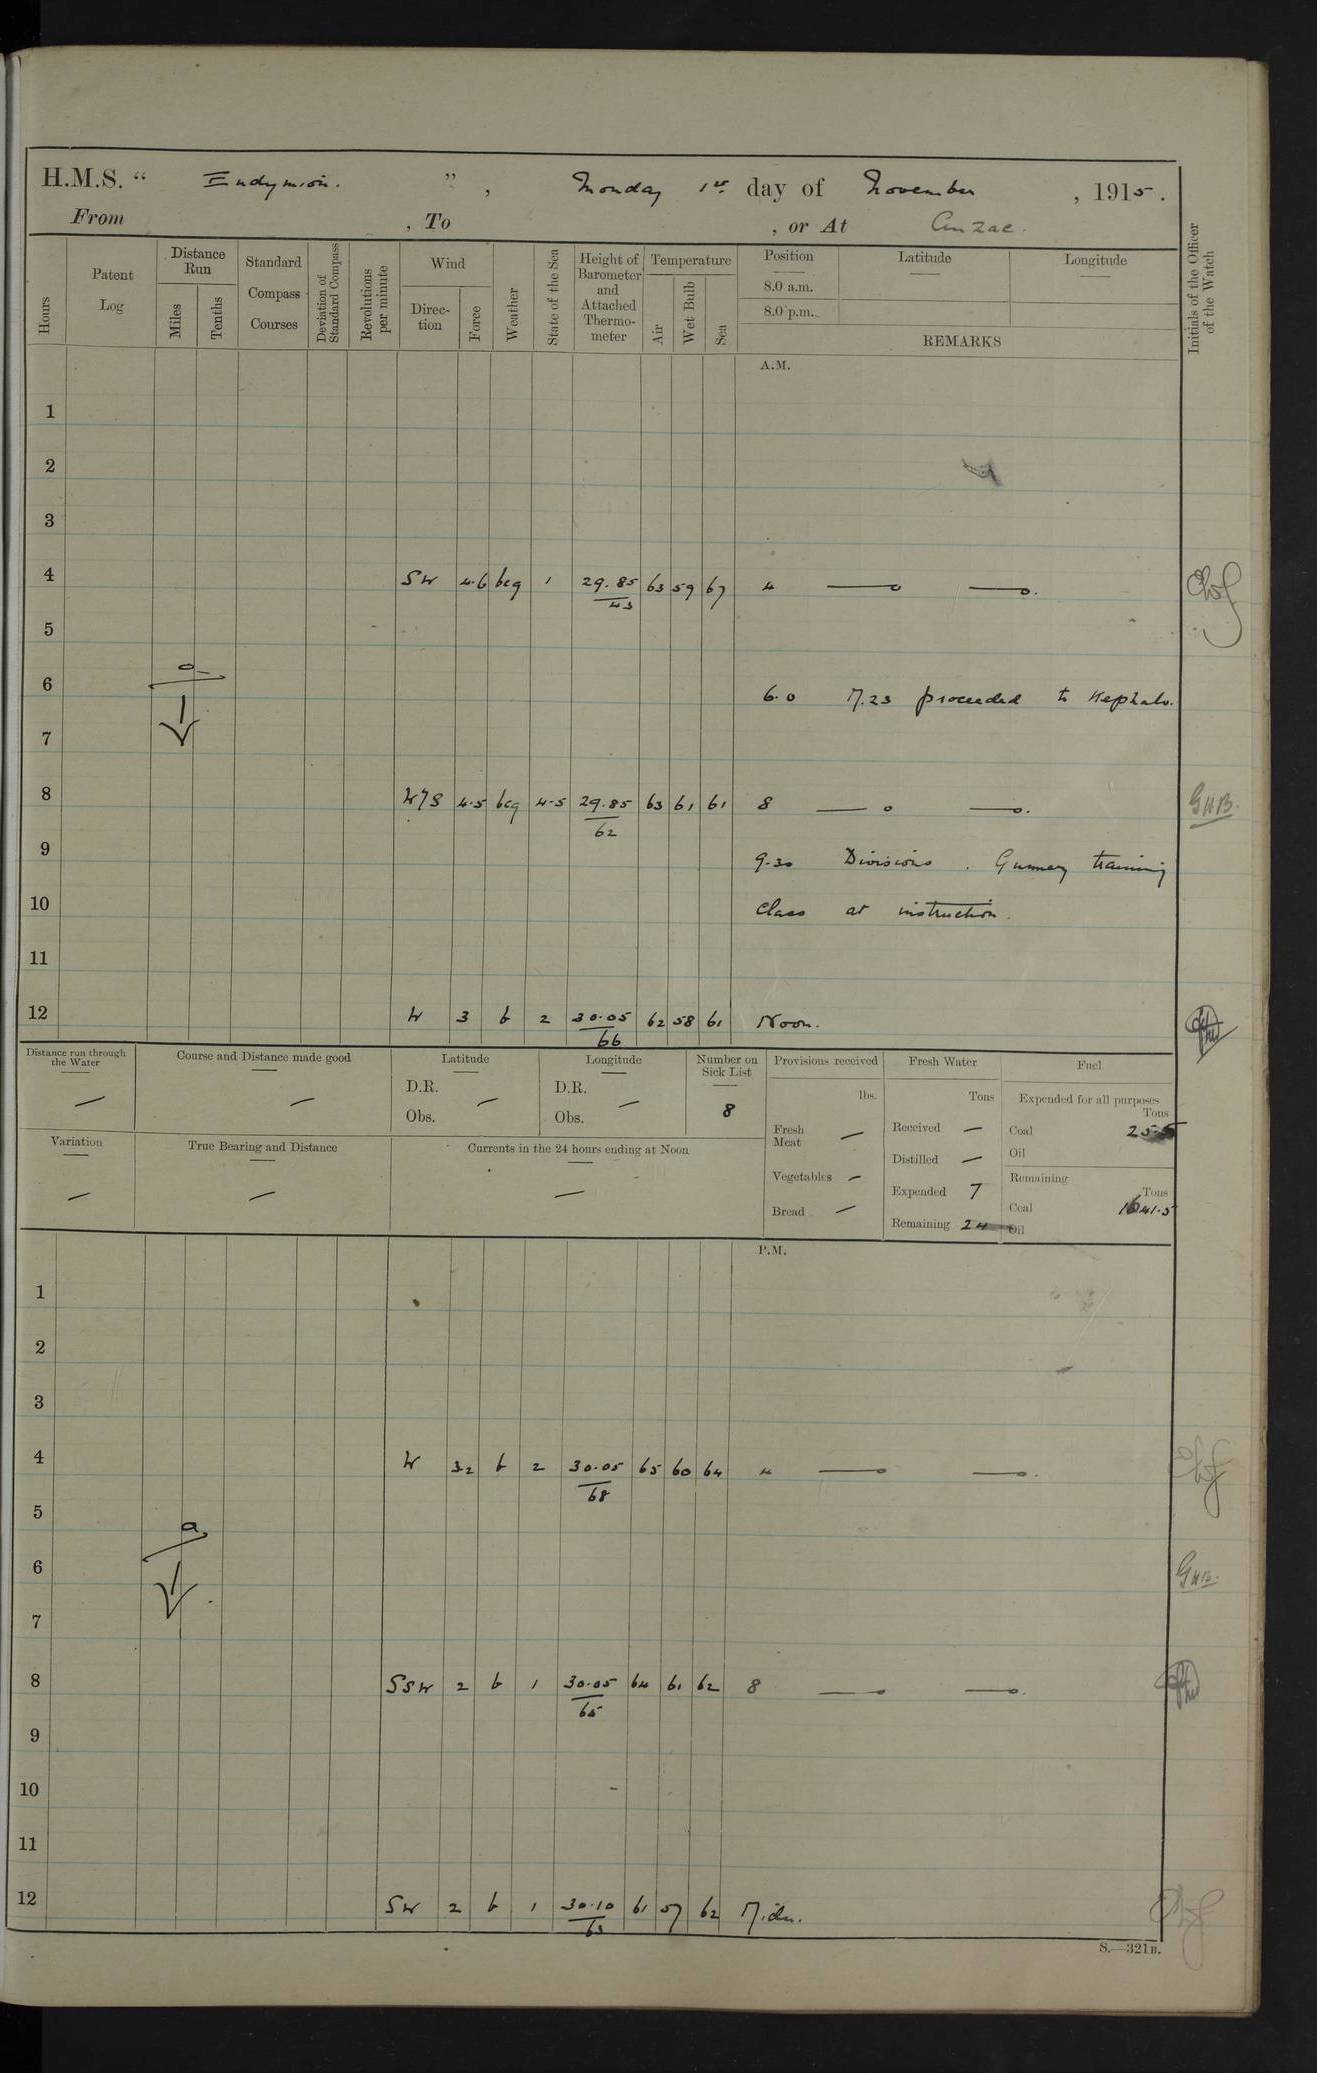 H.M.S. “ Endymion. ” , Monday 1st. day of November , 1915.
From , To , or At Anzac.
Hours
Patent Log
Distance Run
Miles
Tenths
Standard Compass Courses
Deviation of Standard Compass
Revolutions per minute
Wind
Direction
Force
Weather
State of the Sea
Height of Barometer and Attached Thermometer
Temperature
Air
Wet Bulb
Sea
Position
8.0 a.m.
8.0 p.m.
Latitude
Longitude
REMARKS
Initials of the Officer of the Watch
A.M.
1
2
3
4 SW 4.6 bcq 1 29.85 63 59 67 4
43
5
6 6.0 M.23 proceeded to Kephalo.
7
8 W/S 4.5 bcq 4-5 29.85 63 61 61 8 GHB.
62
9 9.30 Divisions. Gunnery training
10 class at instruction.
11
12 W 3 b 2 30.05 62 58 61 Noon.
66
Distance run through the Water
Course and Distance made good
Latitude
D.R.
Obs.
Longitude
D.R.
Obs.
Number on Sick List
8
Provisions received
lbs.
Fresh Meat —
Vegetables —
Bread —
Fresh Water
Tons
Received —
Distilled —
Expended 7
Remaining 24
Fuel
Expended for all purposes
Tons
Coal
Oil
Remaining
Tons
Coal 1641.5
Oil
Variation
True Bearing and Distance
Currents in the 24 hours ending at Noon
P.M.
1
2
3
4 W 32 b 2 30.05 65 60 64 4
68
5
6 GHB.
7
8 SSW 2 b 1 30.05 64 61 62 8
65
9
10
11
12 SW 2 b 1 30.10 61 57 62 Midn.
63
S.—321B.